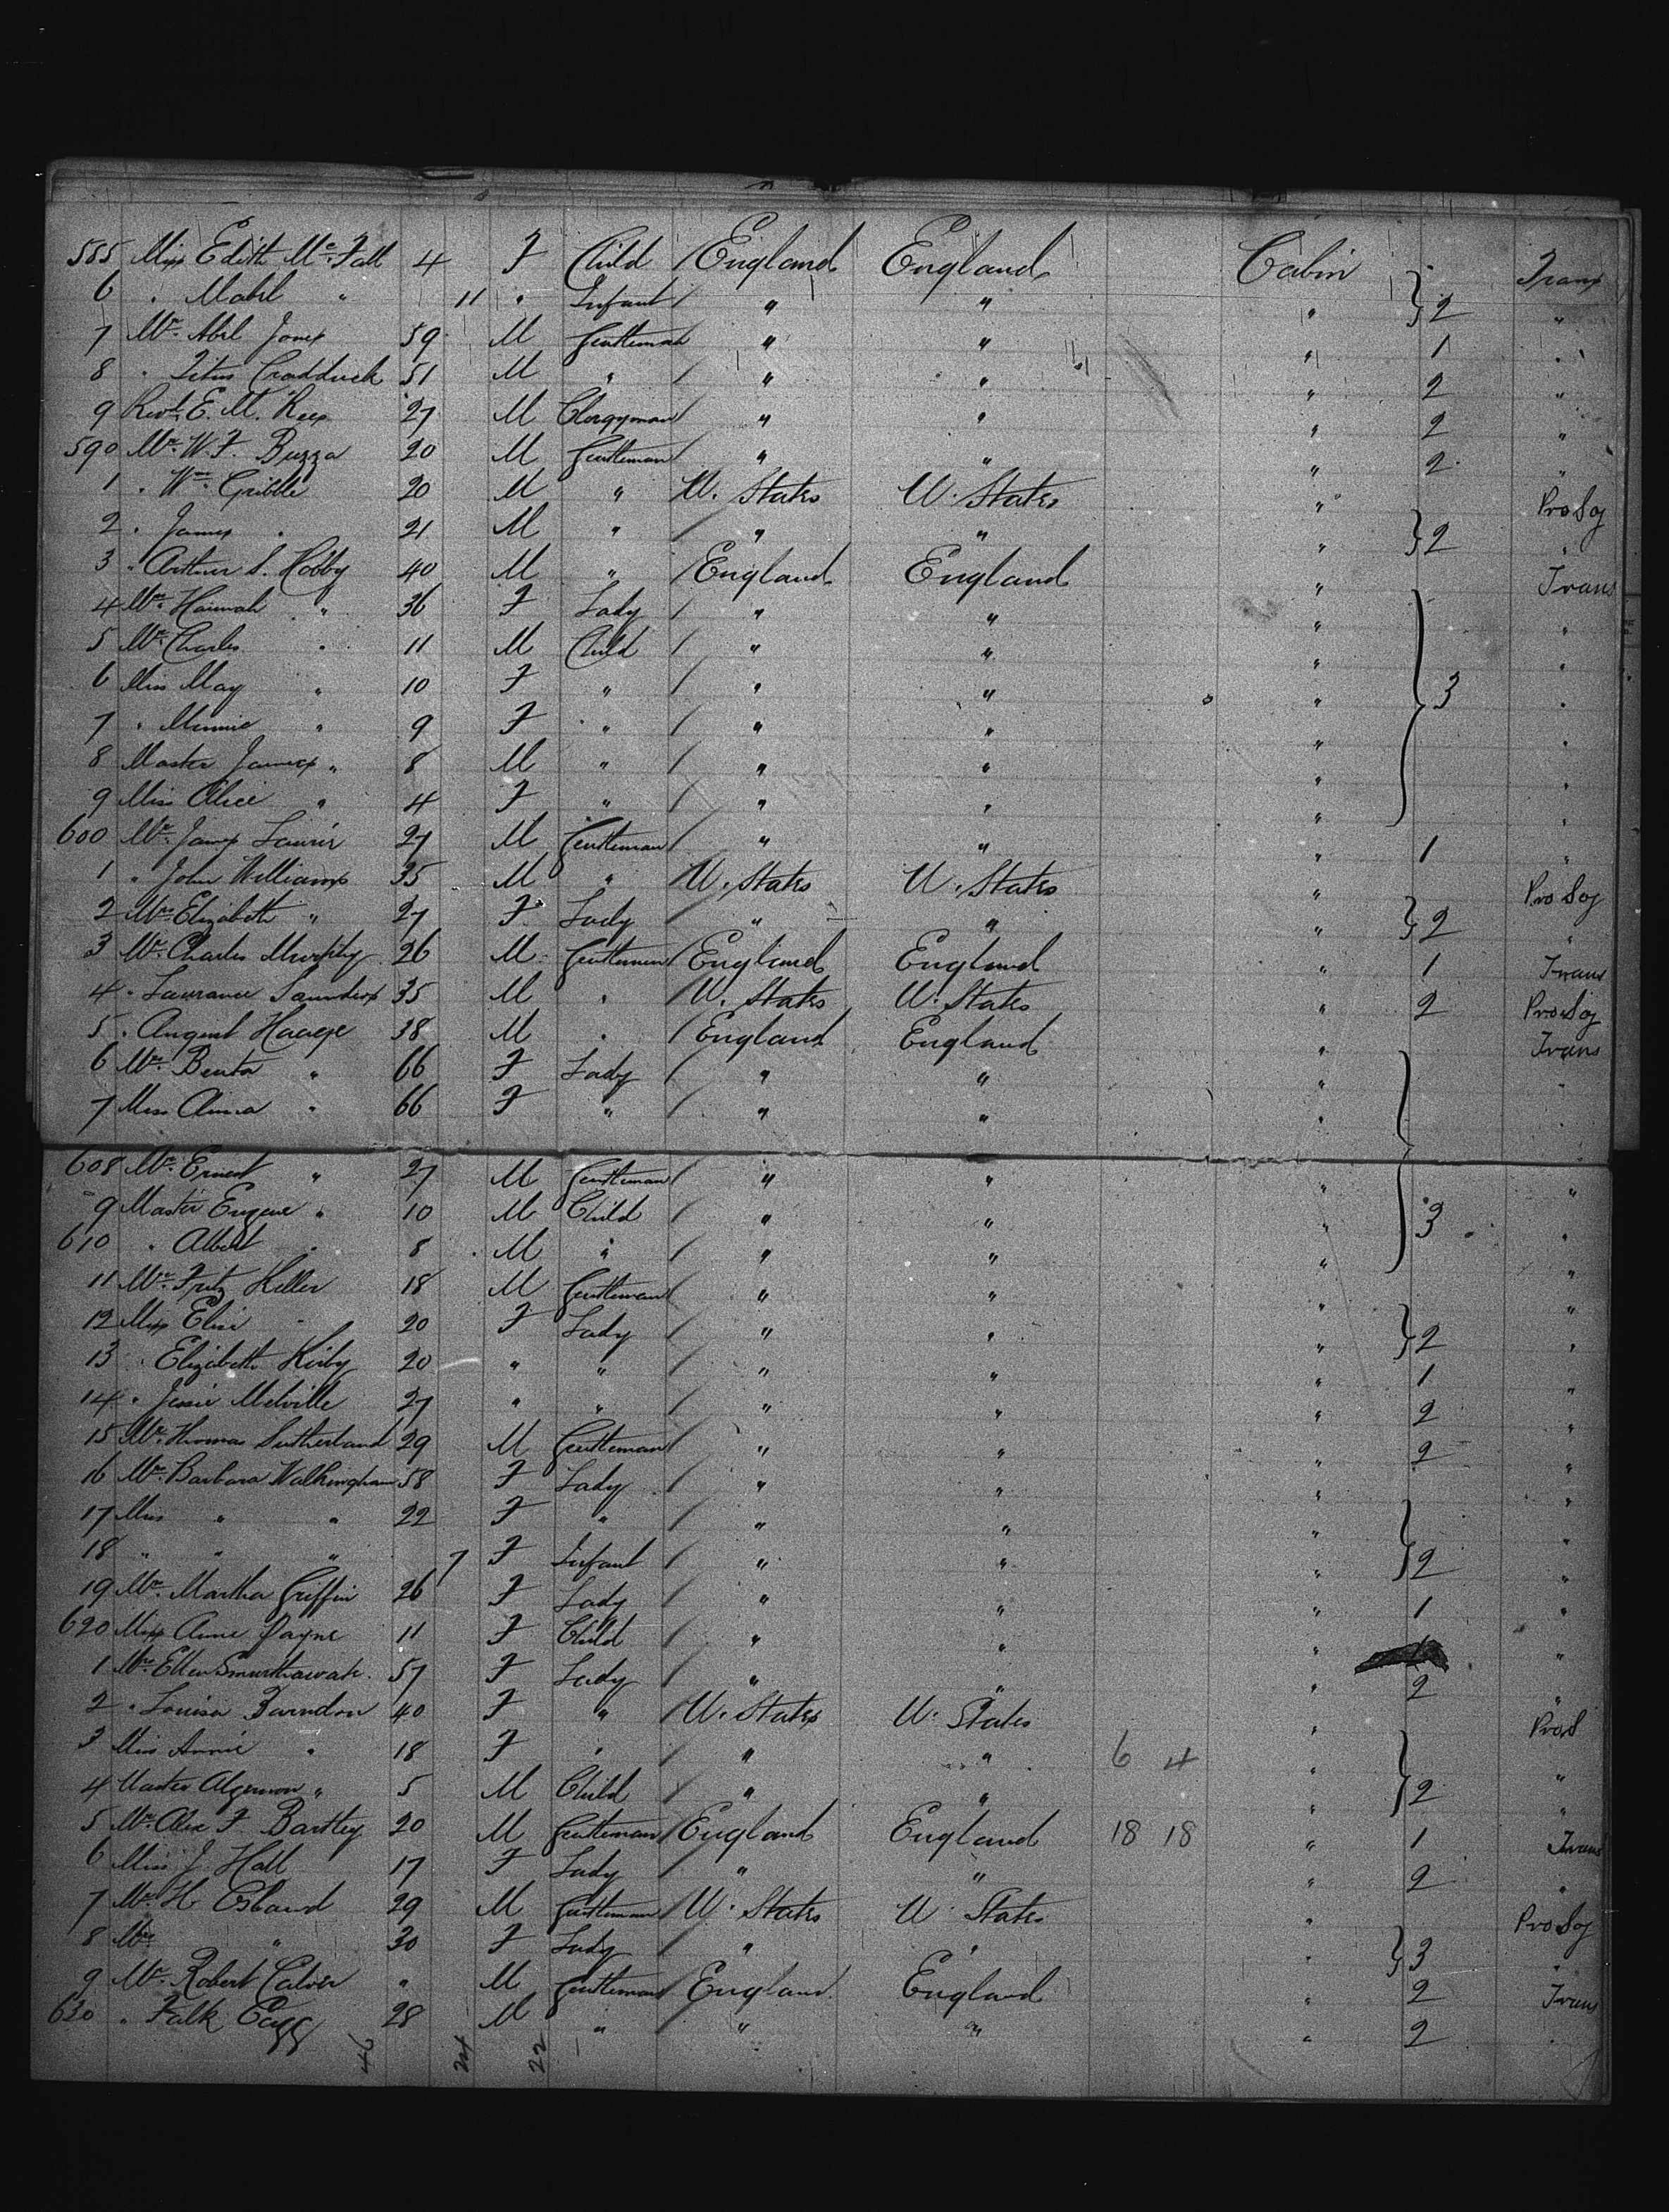 585 Miss Edith Mc. Fall 4 F Child / England England Cabin Trans
6 " Mabel " 11 " Infant / " " " } 2 "
7 Mr. Abel Jones 59 M Gentleman " " " 1 "
8 " Titus Cradduck 51 M " / " " " 2 "
9 Revd. E. M. Rees 27 M Clergyman / " " " 2 "
590 Mr. W. F. Buzza 20 M Gentleman / " " " 2 "
1 " Wm. Gribble 20 M " U. States U. States " Pro Soj
2 " James " 21 M " / " " " } 2 "
3 " Arthur S. Hobby 40 M " / England England " Trans
4 Mrs. Hannah " 36 F Lady / " " " "
5 Mr. Charles " 11 M Child / " " " "
6 Miss May " 10 F " / " " " } 3 "
7 " Minnie " 9 F " / " " " "
8 Master James " 8 M " / " " " "
9 Miss Alice " 4 F " / " " " "
600 Mr. James Laurie 27 M Gentleman / " " " 1 "
1 " John Williams 35 M " / U. States U. States " Pro Soj
2 Mrs. Elizabeth " 27 F Lady / " " " } 2 "
3 Mr. Charles Murphy 26 M Gentleman / England England " 1 Trans
4 " Lawrance Saunders 35 M " / U. States U. States " 2 Pro Soj
5 " Haage 38 M " / England England " Trans
6 Mrs. Benta " 66 F Lady / " " " "
7 Miss Anna " 66 F " / " " " "
608 Mr. Ernest " 27 M Gentleman / " " " "
9 Master Eugene " 10 M Child / " " " } 3 "
610 " Albert " 8 M " / " " " "
11 Mr. Fritz Keller 18 M Gentleman / " " " "
12 Miss Elise " 20 F Lady / " " " } 2 "
13 " Elizabeth Kirby 20 " " / " " " 1 "
14 " Jessie Melville 27 " " / " " " 2 "
15 Mr. Thomas Sutherland 29 M Gentleman / " " " 2 "
16 Mrs. Barbara Walkingham 58 F Lady / " " " "
17 Miss " " 22 F " / " " " "
18 " " " 7 F Infant / " " " } 2 "
19 Mrs. Martha Griffin 26 F Lady / " " " 1 "
620 Miss Anne Payne 11 F Child / " " " "
1 Mrs. Ellen Smurthawate 57 F Lady / " " " 2 "
2 " Louisa 40 F " / U. States U. States " Pro S
3 Miss Annie " 18 F " / " " 6 4 "
4 Master Algernon " 5 M Child / " " " } 2 "
5 Mr. Alex F. Bartley 20 M Gentleman / England England 18 18 " 1 Trans
6 Miss J. Hall 17 F Lady / " " " 2 "
7 Mr. H. 29 M Gentleman / U. States U. States " Pro Soj
8 Mrs " 30 F Lady / " " " } 3 "
9 Mr. Robert Calver " M Gentleman / England England " 2 Trans
630 " Falk 28 M " " " " 2 "
46 24 22